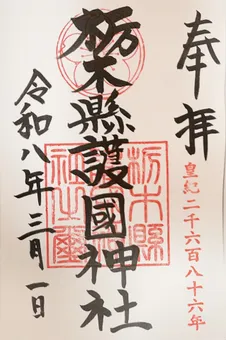 奉拝
皇紀二千六百八十六年
栃木縣護國神社
栃木縣護國神社之璽
令和八年三月一日